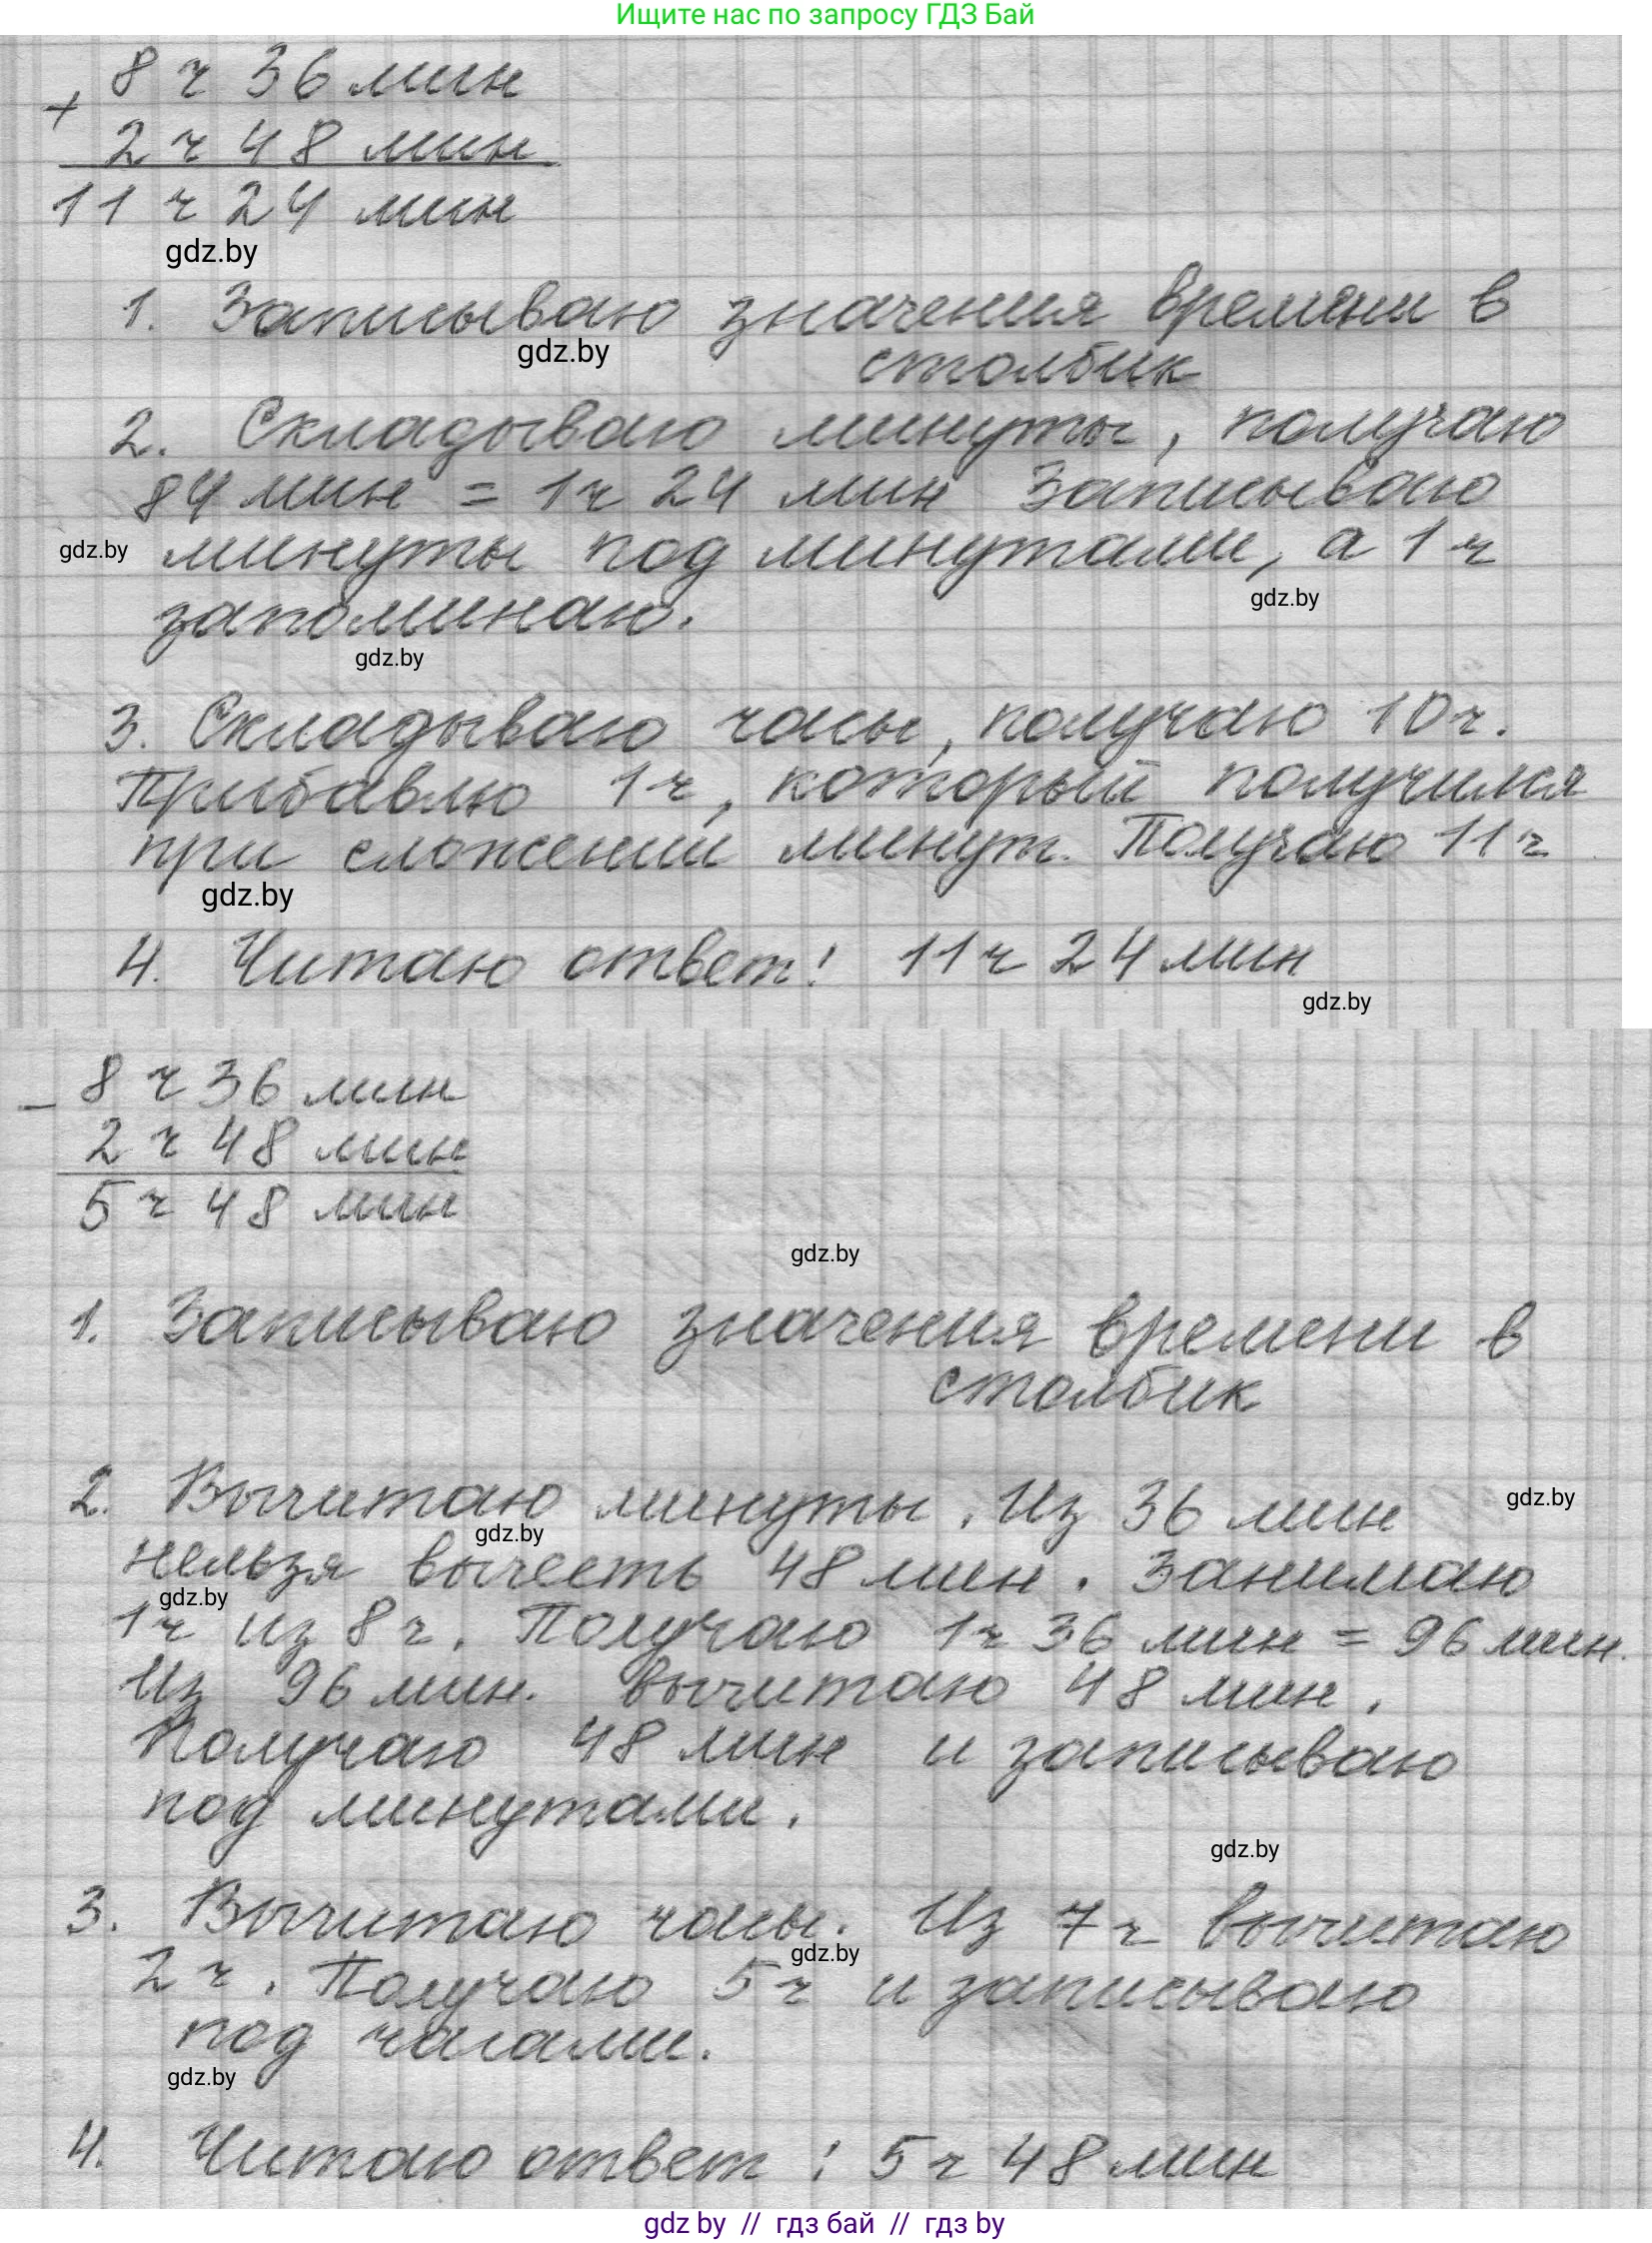 Ищите нас по запросу ГДЗ Бай
8 ч 36 мин
+
2 ч 48 мин
11 ч 24 мин
gdz.by
1. Записываю значения времени в
gdz.by
столбик
2. Складываю минуты, получаю
84 мин = 1ч 24 мин Записываю
gdz.by минуты под минутами, а 1 ч
gdz.by
запоминаю.
gdz.by
3. Складываю часы, получаю 10 ч.
Прибавлю 1 ч, который получился
при сложении минут. Получаю 11 ч
gdz.by
4. Читаю ответ: 11 ч 24 мин
gdz.by
- 8 ч 36 мин
2 ч 48 мин
5 ч 48 мин
gdz.by
1. Записываю значения времени в
столбик
2. Вычитаю минуты. Из 36 мин gdz.by
gdz.by
нельзя вычесть 48 мин. Занимаю
gdz.by
1ч из 8 ч. Получаю 1ч 36 мин = 96 мин.
Из 96 мин. вычитаю 48 мин.
Получаю 48 мин и записываю
под минутами.
gdz.by
3. Вычитаю часы. Из 7 ч вычитаю
gdz.by
2 ч. Получаю 5 ч и записываю
под часами.
gdz.by
4. Читаю ответ: 5 ч 48 мин
gdz by // гдз бай // гдз by